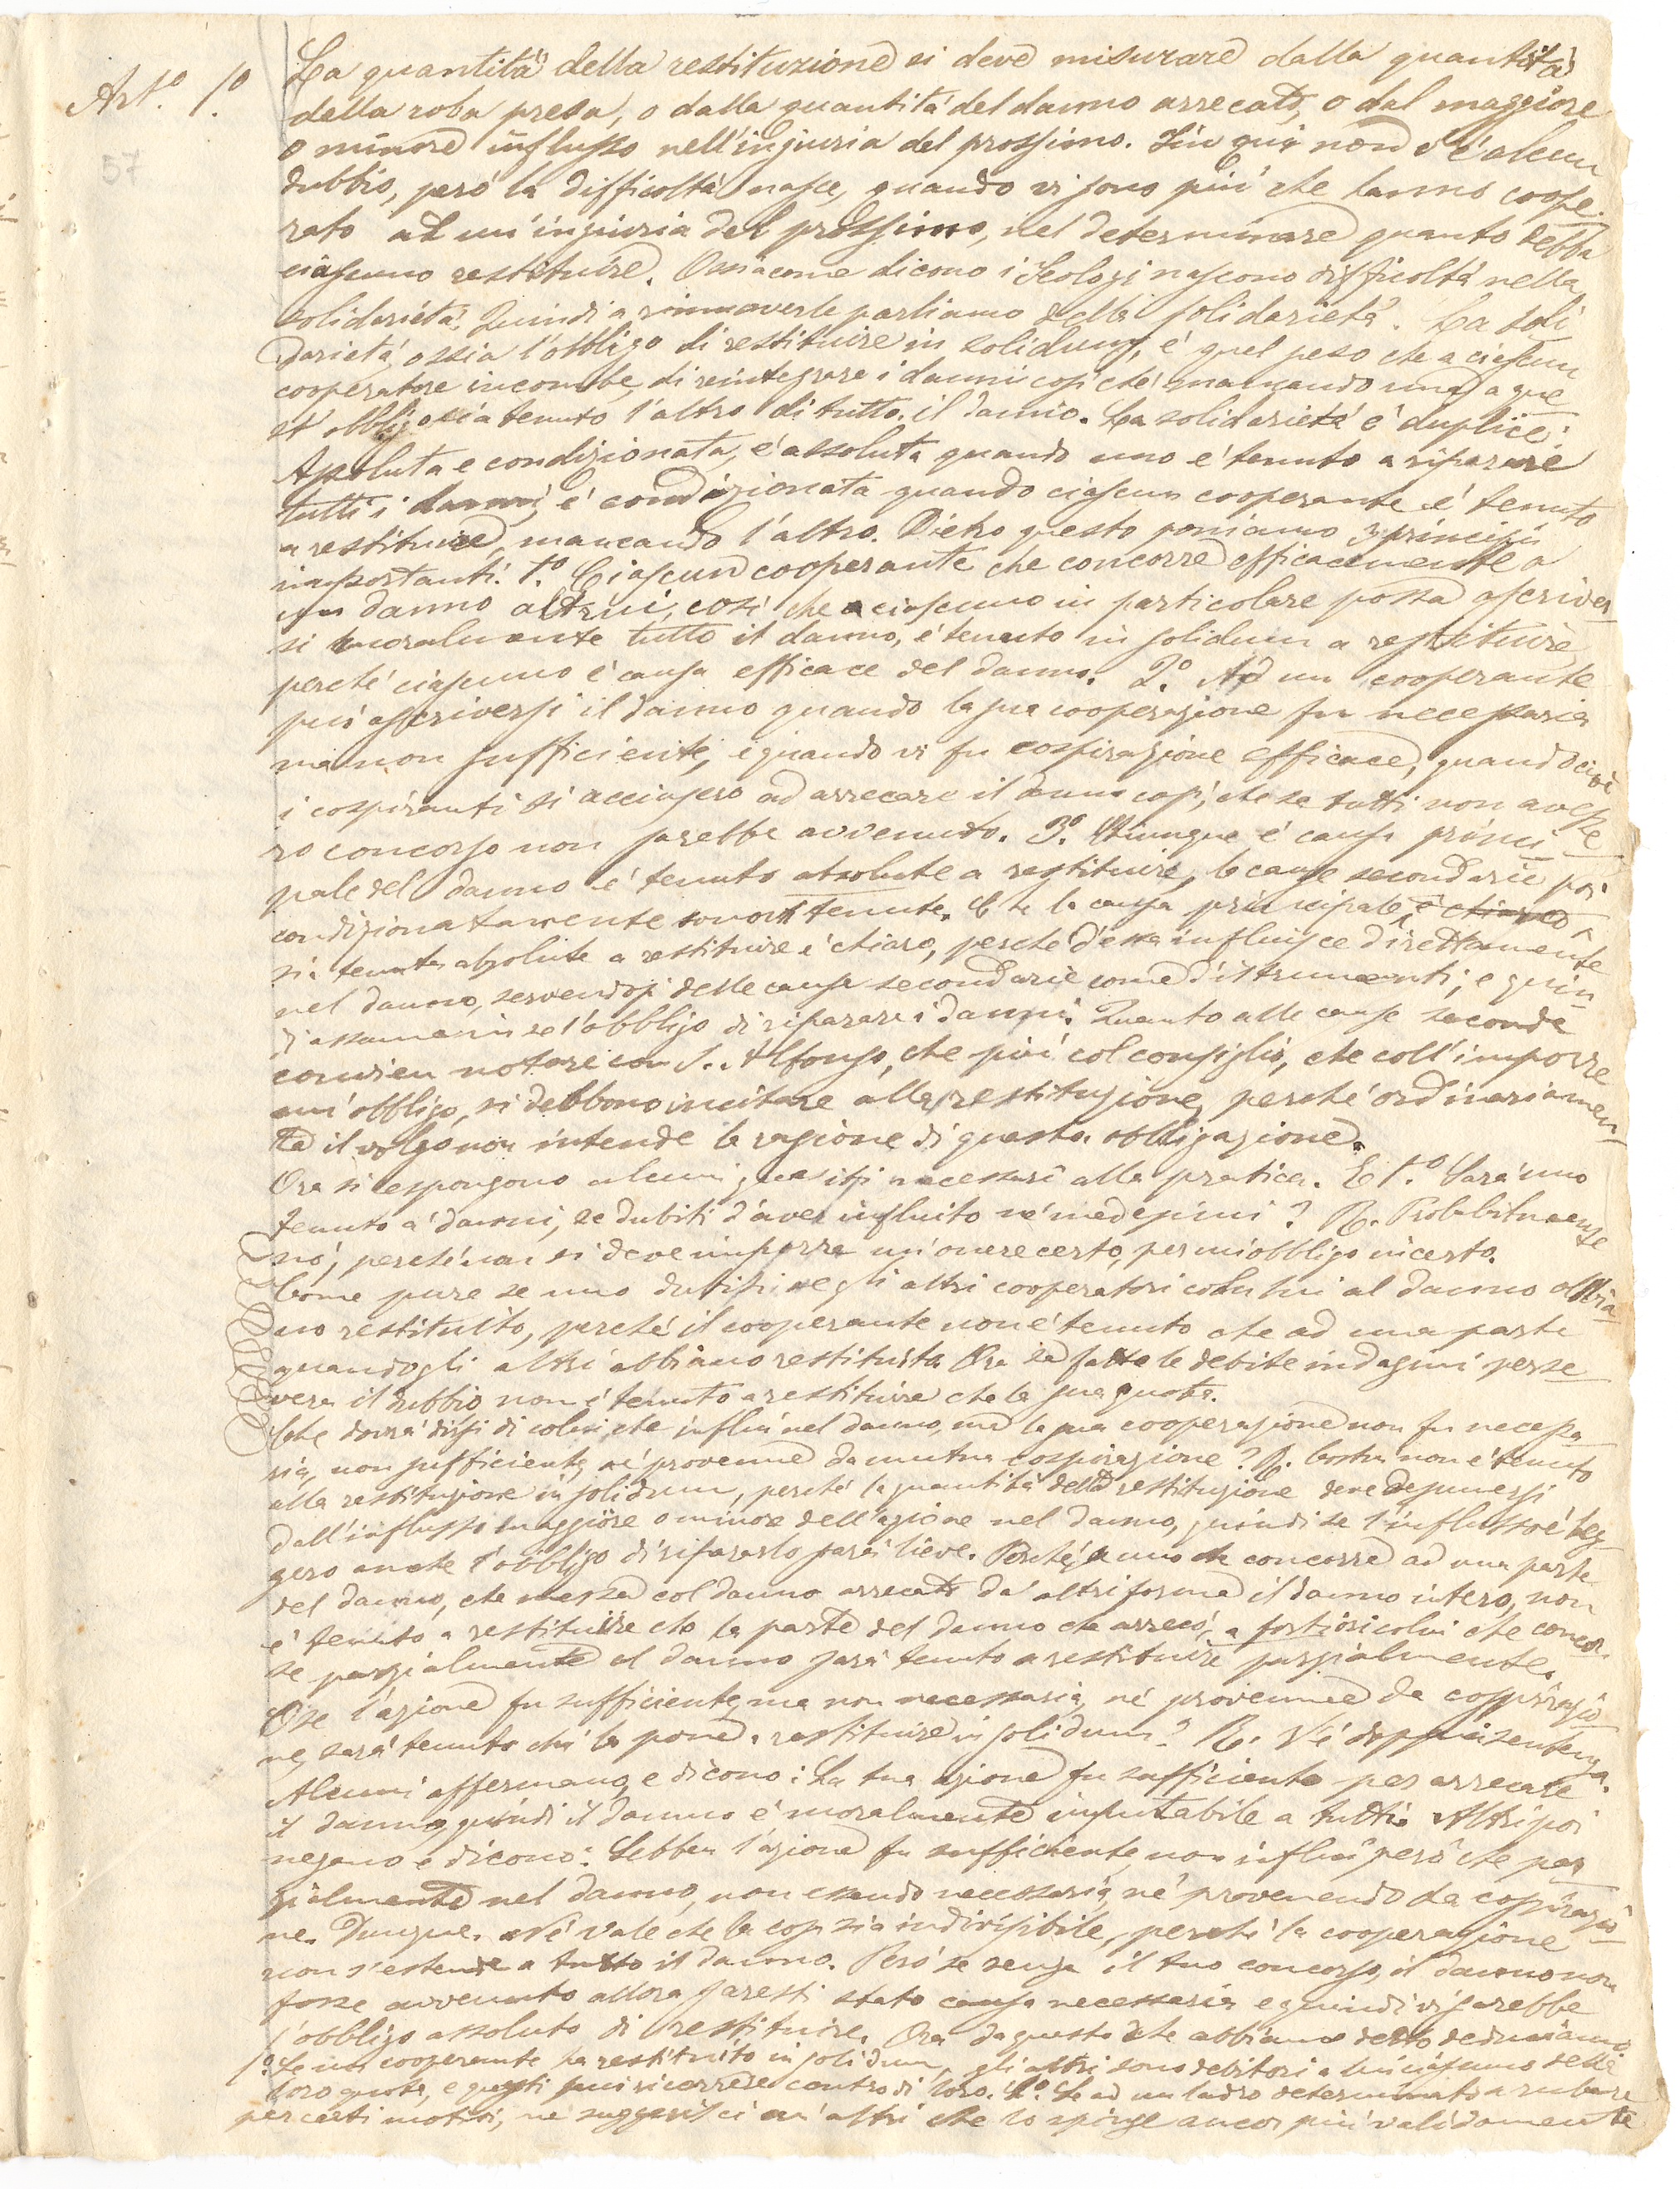 Art.o 1.o
57
La quantità della restituzione si deve misurare dalla quantità
della roba presa, o dalla quantità del danno arrecato, o dal maggiore
o minore influsso nell'ingiuria del prossimo. Fin qui non v'è alcun
dubbio, però la difficoltà nasce, quando vi sono più che hanno coope-
rato ad un'ingiuria del prossimo, nel determinare quanto debba
ciascuno restituire. Ossia come dicono i Teologi nascono difficoltà nella
solidarietà. Quindi a rimuoverle parliamo della solidarietà. La soli
darietà, ossia l'obbligo di restituire in solidum, è quel peso che a ciascun
cooperatore incombe, di reintegrare i danni così che mancando uno a que
st'obbligo sia tenuto l'altro di tutto il danno. La solidarietà è duplice:
Assoluta e condizionata, è assoluta quando uno è tenuto a riparare
tutti i danni, è condizionata quando ciascun cooperante è tenuto
a restituire, mancando l'altro. Dietro questo poniamo 3 principii
importanti. 1.o Ciascun cooperante che concorre efficacemente a
un danno altrui, così che a ciascuno in particolare possa ascriver
si moralmente tutto il danno, è tenuto in solidum a restituire,
perché ciascuno è causa efficace del danno. 2.o Ad un cooperante
può ascriversi il danno quando la sua cooperazione fu necessaria
ma non sufficiente, e quando vi fu cospirazione efficace, quando cioè
i cospiranti si accinsero ad arrecare il danno così, che se tutti non avesse
ro concorso non sarebbe avvenuto. 3.o Chiunque è causa princi
pale del danno è tenuto absolute a restituire, le cause secondarie poi
condizionatamente sono tenute. Che la causa principale
sia tenuta absolute a restituire è chiaro, perché d'essa influisce direttamente
nel danno, servendosi delle cause secondarie come d'istrumenti, e quin
di assume in se l'obbligo di riparare i danni. Quanto alle cause seconde
convien notare con S. Alfonso, che più col consiglio, che coll'imporre
un'obbligo, si debbono incitare alla restituzione, perché ordinariamen
te il volgo non intende la ragione di questa obbligazione.
Ora si espongono alcuni quesiti necessari alla pratica. E 1.o Sarà uno
tenuto a' danni, se dubiti d'aver influito ne' medesimi? R. Probabilmente
no, perché non si deve imporre un'onere certo, per un'obbligo incerto.
Come pure se uno dubiti se gli altri cooperatori con lui al danno abbia
no restituito, perché il cooperante non è tenuto che ad una parte
quando gli altri abbiano restituito. Ora se fatte le debite indagini perse
vera il dubbio non è tenuto a restituire che la sua quota.
Che dovrà dirsi di colui che influì nel danno, ma la sua cooperazione non fu necessa
ria, non sufficiente, né provenne da mutua cospirazione? R. Costui non è tenuto
alla restituzione in solidum, perché la quantità della restituzione deve desumersi
dall'influsso maggiore o minore dell'azione nel danno, quindi se l'influsso è leg
gero anche l'obbligo di ripararlo sarà lieve. Perché, se uno che concorre ad una parte
del danno, che messa col danno arrecato da' altri forma il danno intero, non
è tenuto a restituire che la parte del danno che arrecò, a fortiori colui che concor
se parzialmente al danno sarà tenuto a restituire parzialmente.
O se l'azione fu sufficiente, ma non necessaria, né provenne da cospirazio
ne, sarà tenuto chi la pone a restituire in solidum? R. V'è doppia sentenza.
Alcuni affermano, e dicono: La tua azione fu sufficiente per arrecare
il danno, quindi il danno è moralmente imputabile a tutti. Altri poi
negano e dicono: Sebben l'azione fu sufficiente, non influì però che par
zialmente nel danno, non essendo necessaria, né provenendo da cospirazio
ne. Dunque. Né vale che la cosa sia indivisibile, perché la cooperazione
non s'estende a tutto il danno. Però se senza il tuo concorso, il danno non
fosse avvenuto allora saresti stato causa necessaria e quindi vi sarebbe
l'obbligo assoluto di restituire. Ora da questo che abbiamo detto deduciamo
1.o Se un cooperante ha restituito in solidum, gli altri sono debitori a lui ciascuno della
loro quota, e questi può ricorrere contro di loro. 2.o Se ad un ladro determinato a rubare
per certi motivi, ne suggerisci un'altri che lo spinge ancor più validamente